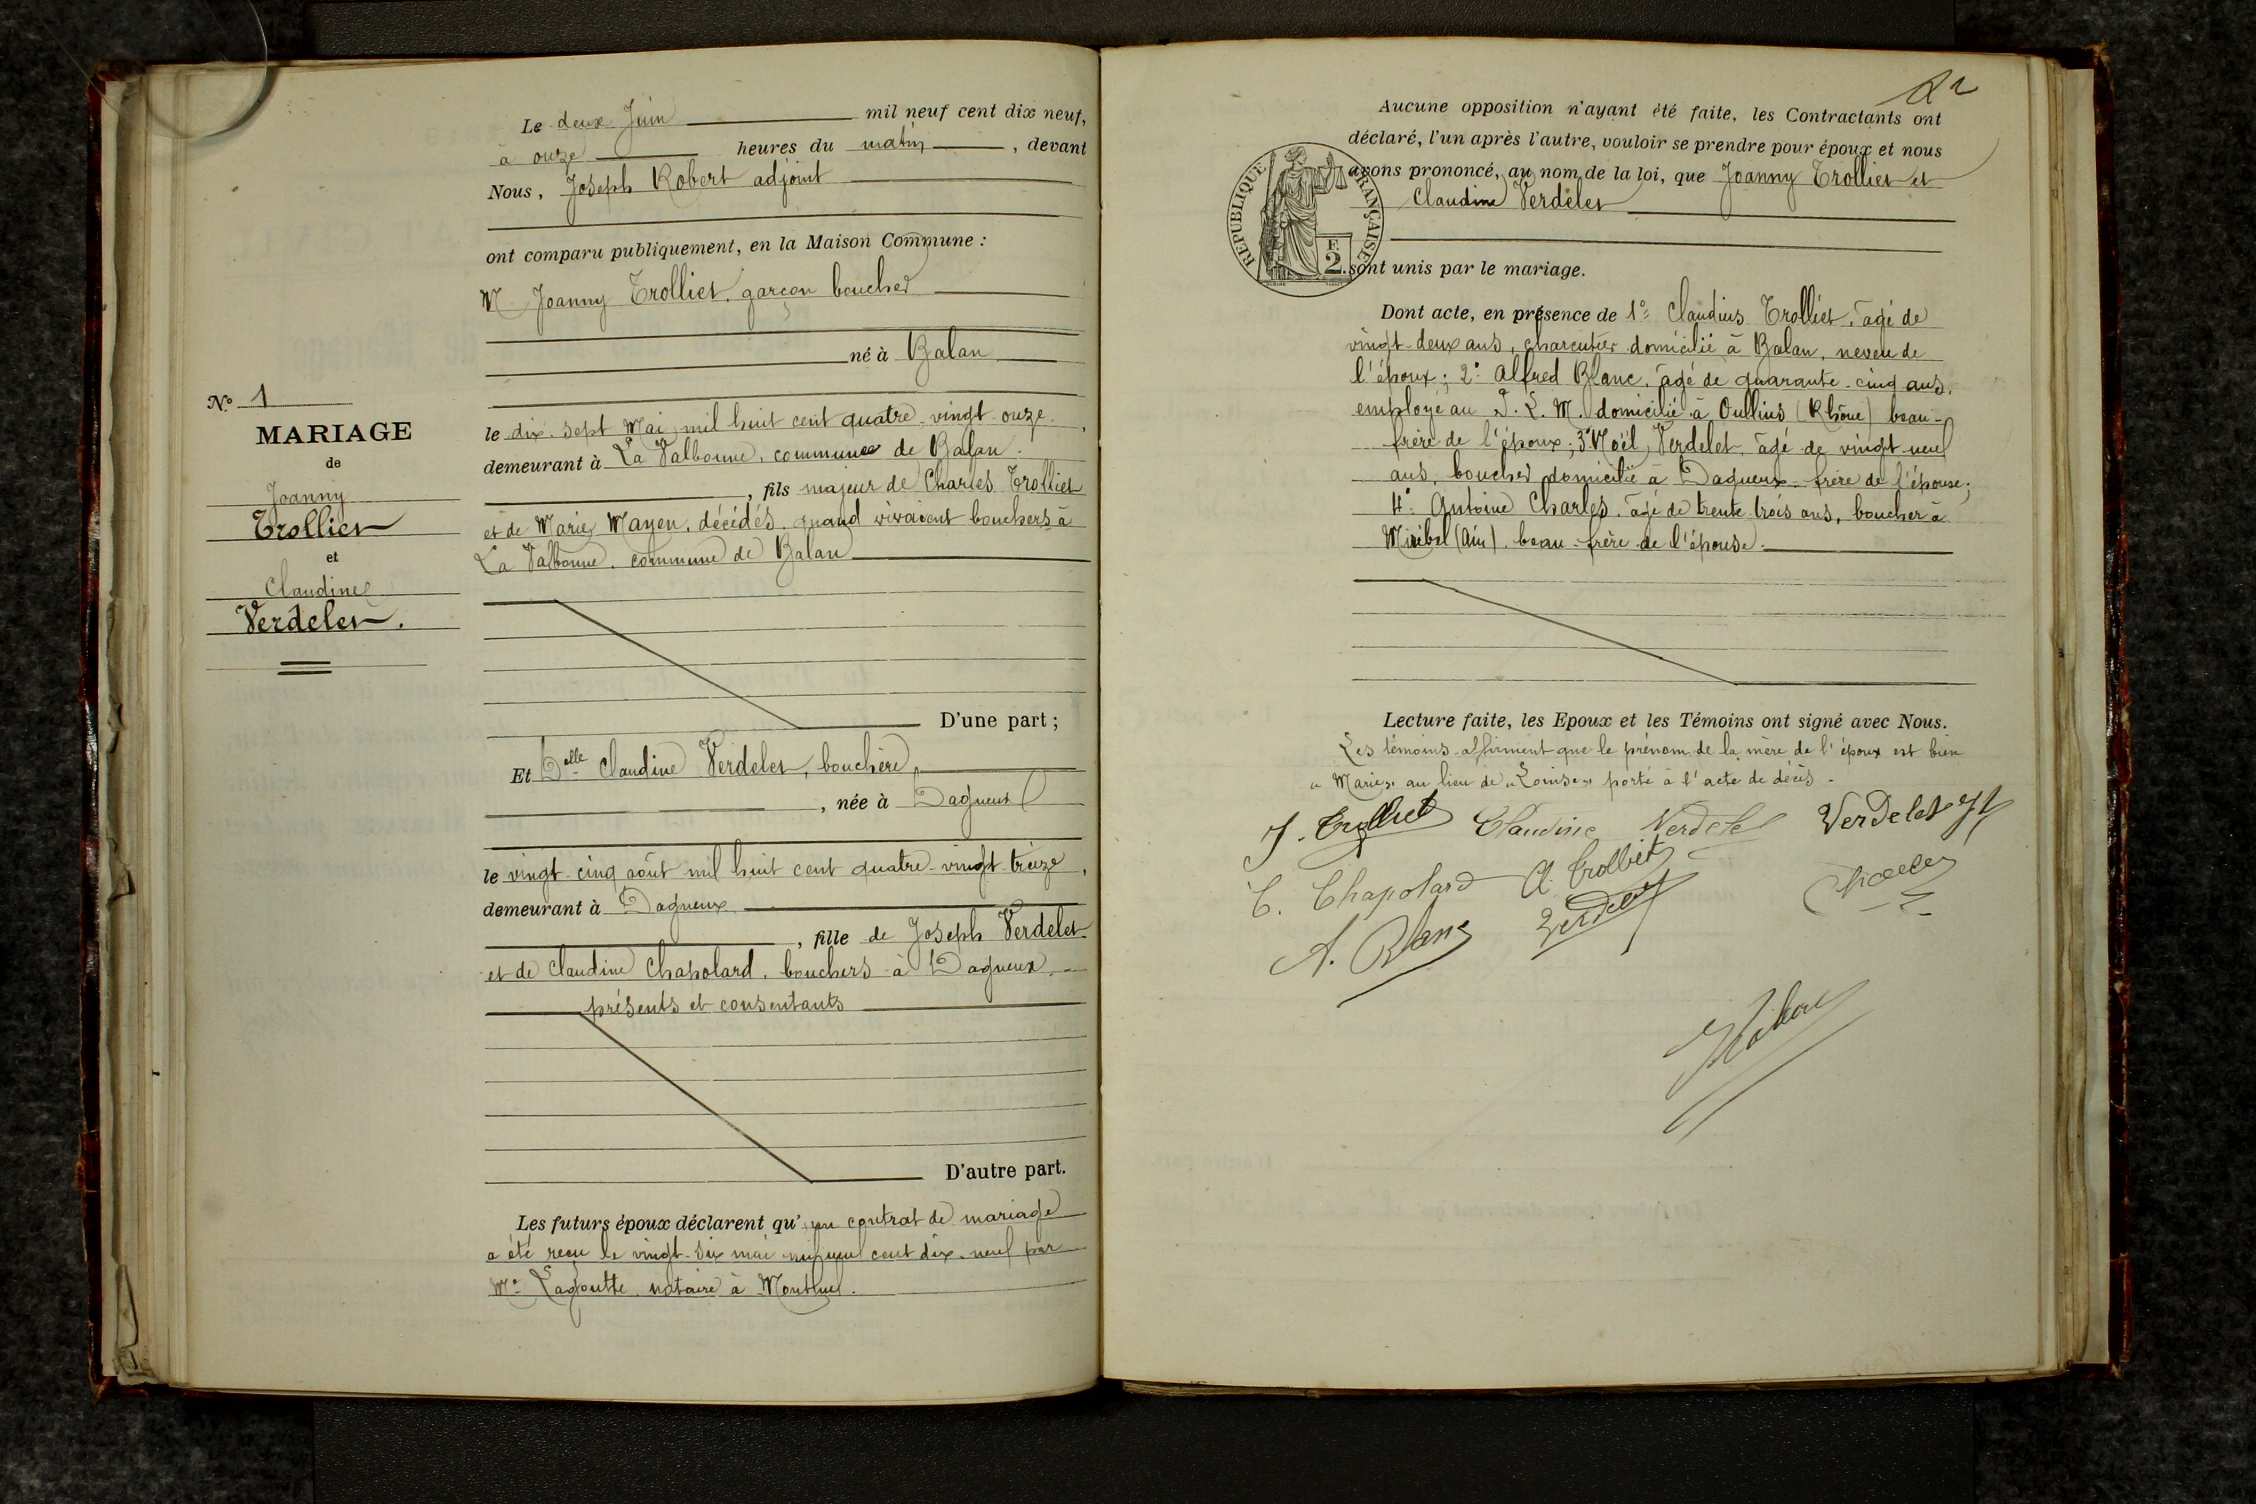 N.º 1
MARIAGE
de
Joanny
Trolliet
et
Claudine
Verdelet.
Le deux Juin mil neuf cent dix neuf,
à onze heures du matin, devant
Nous, Joseph Robert adjoint
ont comparu publiquement, en la Maison Commune :
M. Joanny Trolliet, garçon boucher
né à Balan
le dix-sept Mai mil huit cent quatre-vingt-onze,
demeurant à La Valbonne, commune de Balan.
, fils majeur de Charles Trolliet
et de Marie Mayen, décédés, quand vivaient bouchers à
La Valbonne, commune de Balan
D'une part ;
Et Delle Claudine Verdelet, bouchère,
, née à Dagneux
le vingt-cinq août mil huit cent quatre-vingt-treize,
demeurant à Dagneux
, fille de Joseph Verdelet
et de Claudine Chapolard, bouchers à Dagneux,
présents et consentants
D'autre part.
Les futurs époux déclarent qu'un contrat de mariage
a été reçu le vingt-six mai mil neuf cent dix-neuf par
Me Lagoutte, notaire à Montluel.
Aucune opposition n'ayant été faite, les Contractants ont
déclaré, l'un après l'autre, vouloir se prendre pour époux et nous
avons prononcé, au nom de la loi, que Joanny Trolliet et
Claudine Verdelet
RÉPUBLIQUE FRANÇAISE
F. 2
sont unis par le mariage.
Dont acte, en présence de 1º Claudius Trolliet, âgé de
vingt-deux ans, charcutier domicilié à Balan, neveu de
l'époux ; 2º Alfred Blanc, âgé de quarante-cinq ans,
employé au P. L. M. domicilié à Oullins (Rhône) beau-
frère de l'époux ; 3º Noël Verdelet, âgé de vingt-neuf
ans, boucher domicilié à Dagneux frère de l'épouse ;
4º Antoine Charles, âgé de trente-trois ans, boucher à
Miribel (Ain), beau-frère de l'épouse.
Lecture faite, les Epoux et les Témoins ont signé avec Nous.
Les témoins affirment que le prénom de la mère de l'époux est bien
"Marie" au lieu de "Louise" porté à l'acte de décès.
J. Trolliet Claudine Verdelet Verdelet
C. Chapolard Cl. Trolliet
A. Blanc Verdelet